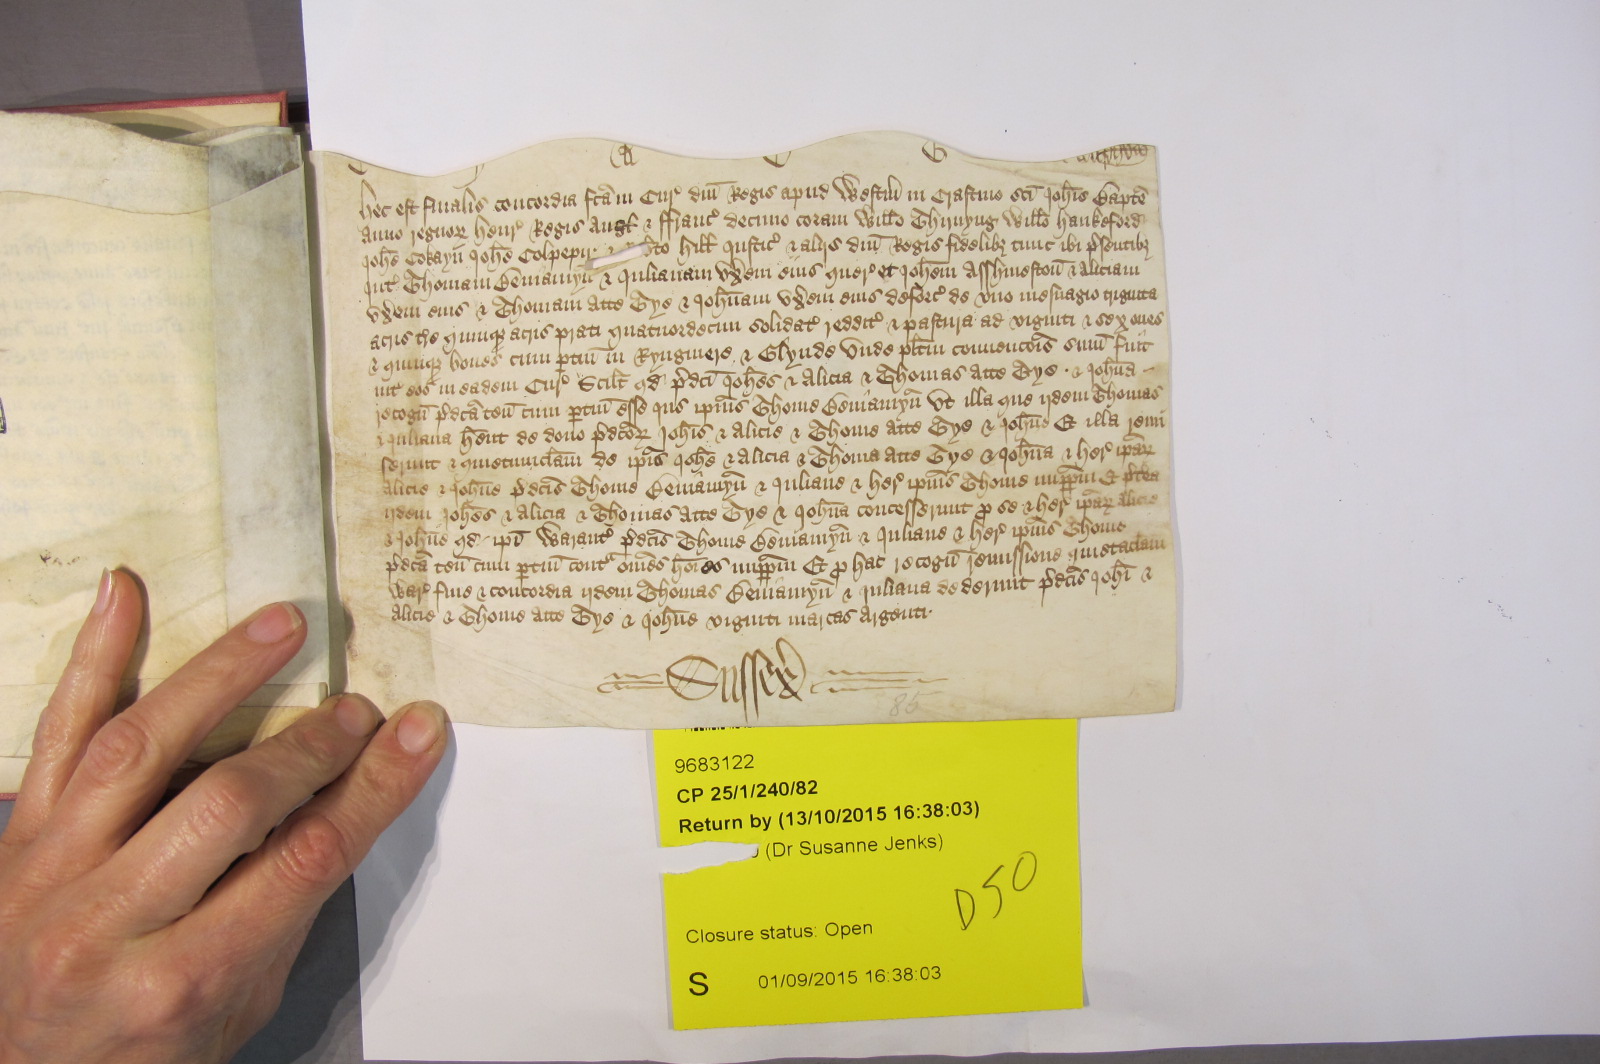 Hec est finalis concordia fcā in Cur' dnī Regis apud Westm̄ in Crastino scī Joh̄is Bapte
Anno regnor' Henr' Regis Angl' & ffranc' decimo coram Will̄o Thirnyng Will̄o Hankeford
Joh̄e Cokayn Joh̄e Colpepir & Hill Justic' & alijs dnī Regis fidelibȝ tunc ibi p̄sentibȝ
Int' Thomam Beniamyn̄ & Julianam vx̄em eius quer' et Joh̄em Asshmeston̄ & Aliciam
vx̄em eius & Thomam atte Tye & Joh̄nam vx̄em eius deforc' de vno mesuagio triginta
acris tr̄e quinqȝ acris prati quatuordecim solidat' reddit' & pastura ad viginti & sex oues
& quinqȝ boues cum ptin̄ in Ryngmere & Glynde Vnde pl̄itm conuencōis sum̄ fuit
int' eos in eadem Cur' Scil̄t qd p̄dc̄i Joh̄es & Alicia & Thomas atte Tye & Joh̄na
recogn̄ p̄dc̄a ten̄ cum ptin̄ esse jus ip̄ius Thome Beniamyn̄ vt illa que ijdem Thomas
& Juliana h̄ent de dono p̄dc̄or' Joh̄is & Alicie & Thome atte Tye & Joh̄ne Et illa remi
serunt & quietumclam̄ de ip̄is Joh̄e & Alicia & Thoma atte Tye & Joh̄na & her' ip̄ar'
Alicie & Joh̄ne p̄dc̄is Thome Beniamyn̄ & Juliane & her' ip̄ius Thome imppm̄ Et p̄tea
ijdem Joh̄es & Alicia & Thomas atte Tye & Joh̄na concesserunt p se & her' ip̄ar' Alicie
& Joh̄ne qd ip̄i Warant' p̄dc̄is Thome Beniamyn̄ & Juliane & her' ip̄ius Thome
p̄dc̄a ten̄ cum ptin̄ cont' om̄es hōies imppm̄ Et p hac recogn̄ remissione quietaclam̄
War' fine & concordia ijdem Thomas Beniamyn̄ & Juliana dederunt p̄dc̄is Joh̄i &
Alicie & Thome atte Tye & Joh̄ne viginti marcas Argenti
Sussex
85
9683122
CP 25/1/240/82
Return by (13/10/2015 16:38:03)
(Dr Susanne Jenks)
D50
Closure status: Open
S 01/09/2015 16:38:03